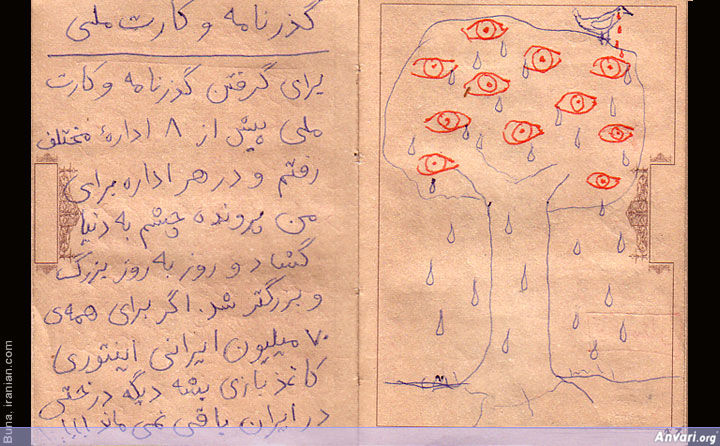 گذرنامه و کارت ملی
برای گرفتن گذرنامه و کارت
ملی بیش از ۸ ادارهٔ مختلف
رفتم و در هر اداره برای
من پرونده چشم به دنیا
گشاد و روز به روز بزرگ
و بزرگتر شد. اگر برای همه‌ی
۷۰ میلیون ایرانی اینتوری
کاغذ بازی بشه دیگه درختی
در ایران باقی نمی ماند!!!
Buna. iranian.com
Anvari.org